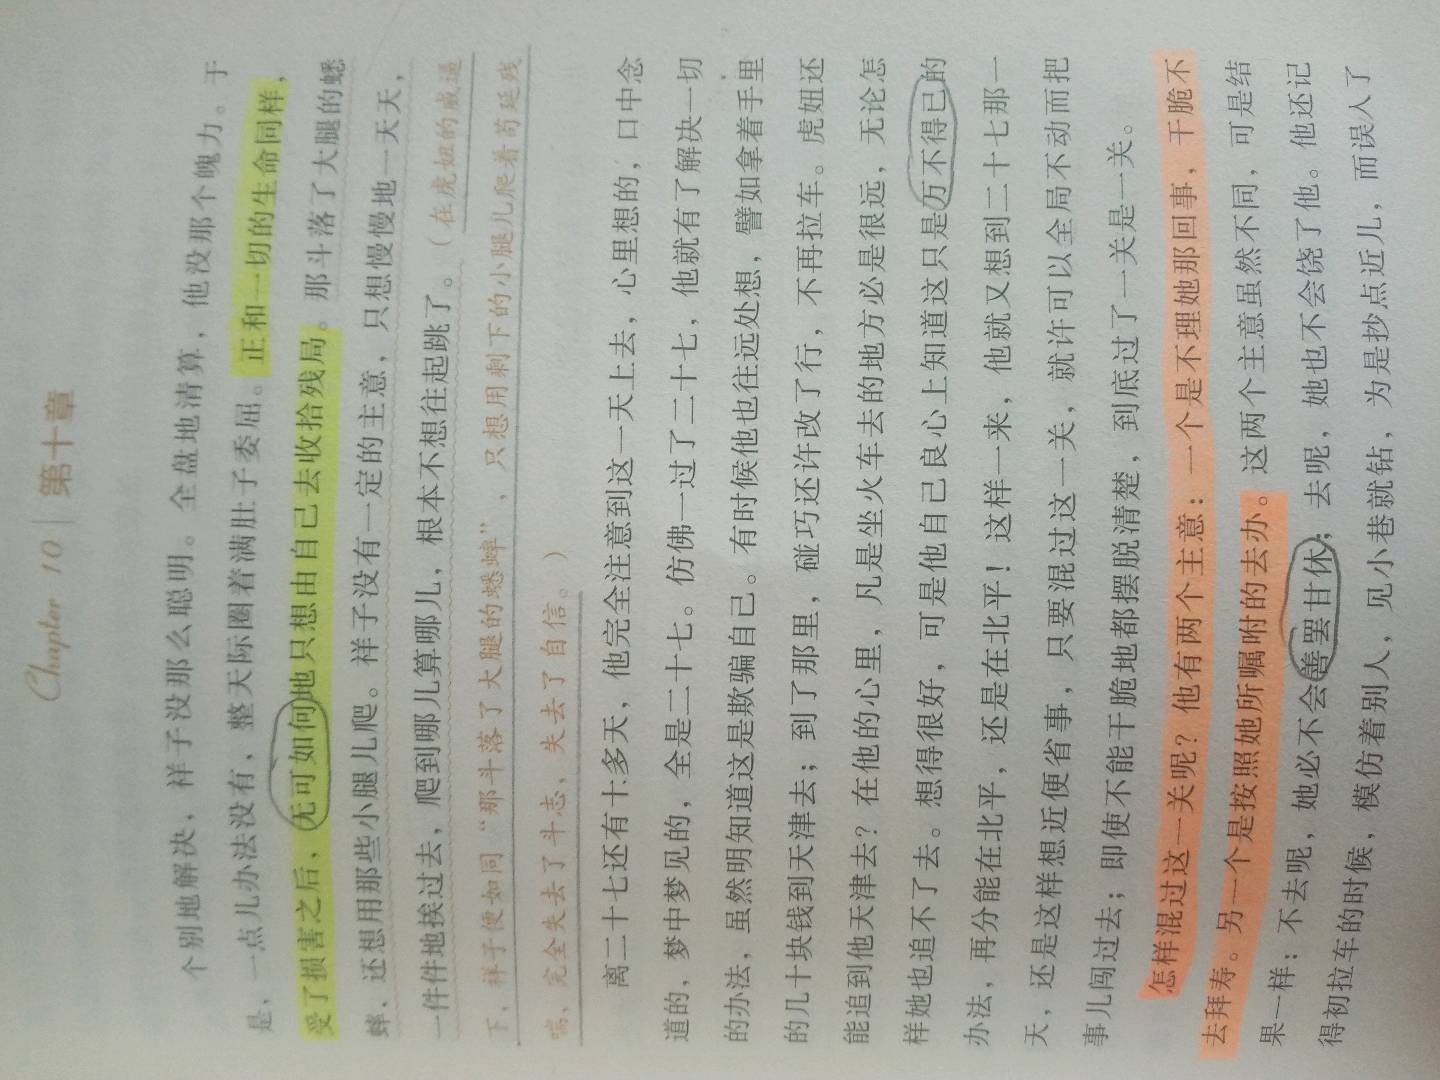 Chapter 10 | 第十章
个别地解决，祥子没那么聪明。全盘地清算，他没那个魄力。于
是，一点儿办法没有，整天际圈着满肚子委屈。正和一切的生命同样，
受了损害之后，无可如何地只想由自己去收拾残局。那斗落了大腿的蟋
蟀，还想用那些小腿儿爬。祥子没有一定的主意，只想慢慢地一天天，
一件件地挨过去，爬到哪儿算哪儿，根本不想往起跳了。（在虎妞的威逼
下，祥子便如同“那斗落了大腿的蟋蟀”，只想用剩下的小腿儿爬着苟延残
喘，完全失去了斗志，失去了自信。）
离二十七还有十多天，他完全注意到这一天上去，心里想的，口中念
道的，梦中梦见的，全是二十七。仿佛一过了二十七，他就有了解决一切
的办法，虽然明知道这是欺骗自己。有时候他也往远处想，譬如拿着手里
的几十块钱到天津去；到了那里，碰巧还许改了行，不再拉车。虎妞还
能追到他天津去？在他的心里，凡是坐火车去的地方必是很远，无论怎
样她也追不了去。想得很好，可是他自己良心上知道这只是万不得已的
办法，再分能在北平，还是在北平！这样一来，他就又想到二十七那一
天，还是这样想近便省事，只要混过这一关，就许可以全局不动而把
事儿闯过去；即使不能干脆地都摆脱清楚，到底过了一关是一关。
怎样混过这一关呢？他有两个主意：一个是不理她那回事，干脆不
去拜寿。另一个是按照她所嘱咐的去办。这两个主意虽然不同，可是结
果一样：不去呢，她必不会善罢甘休；去呢，她也不会饶了他。他还记
得初拉车的时候，模仿着别人，见小巷就钻，为是抄点近儿，而误入了